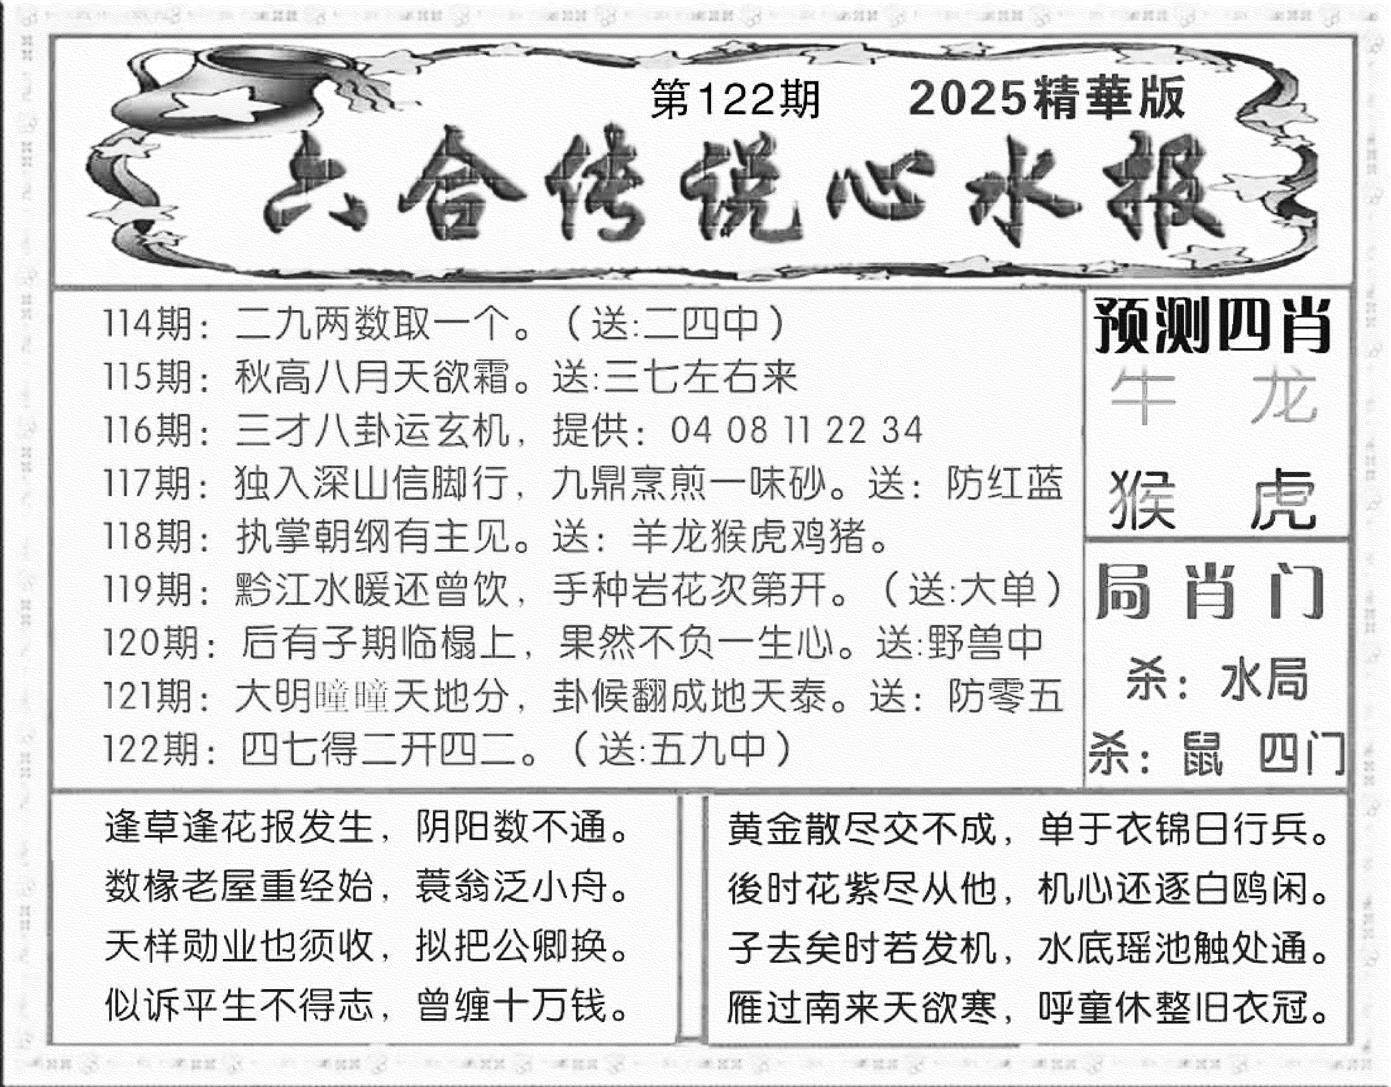 第122期 2025精華版
六合传说心水报
114期：二九两数取一个。（送:二四中）
115期：秋高八月天欲霜。送:三七左右来
116期：三才八卦运玄机，提供：04 08 11 22 34
117期：独入深山信脚行，九鼎烹煎一味砂。送：防红蓝
118期：执掌朝纲有主见。送：羊龙猴虎鸡猪。
119期：黔江水暖还曾饮，手种岩花次第开。（送:大单）
120期：后有子期临榻上，果然不负一生心。送:野兽中
121期：大明曈曈天地分，卦候翻成地天泰。送：防零五
122期：四七得二开四二。（送:五九中）
预测四肖
牛 龙
猴 虎
局肖门
杀：水局
杀：鼠 四门
逢草逢花报发生，阴阳数不通。
数椽老屋重经始，蓑翁泛小舟。
天样勋业也须收，拟把公卿换。
似诉平生不得志，曾缠十万钱。
黄金散尽交不成，单于衣锦日行兵。
後时花紫尽从他，机心还逐白鸥闲。
子去矣时若发机，水底瑶池触处通。
雁过南来天欲寒，呼童休整旧衣冠。